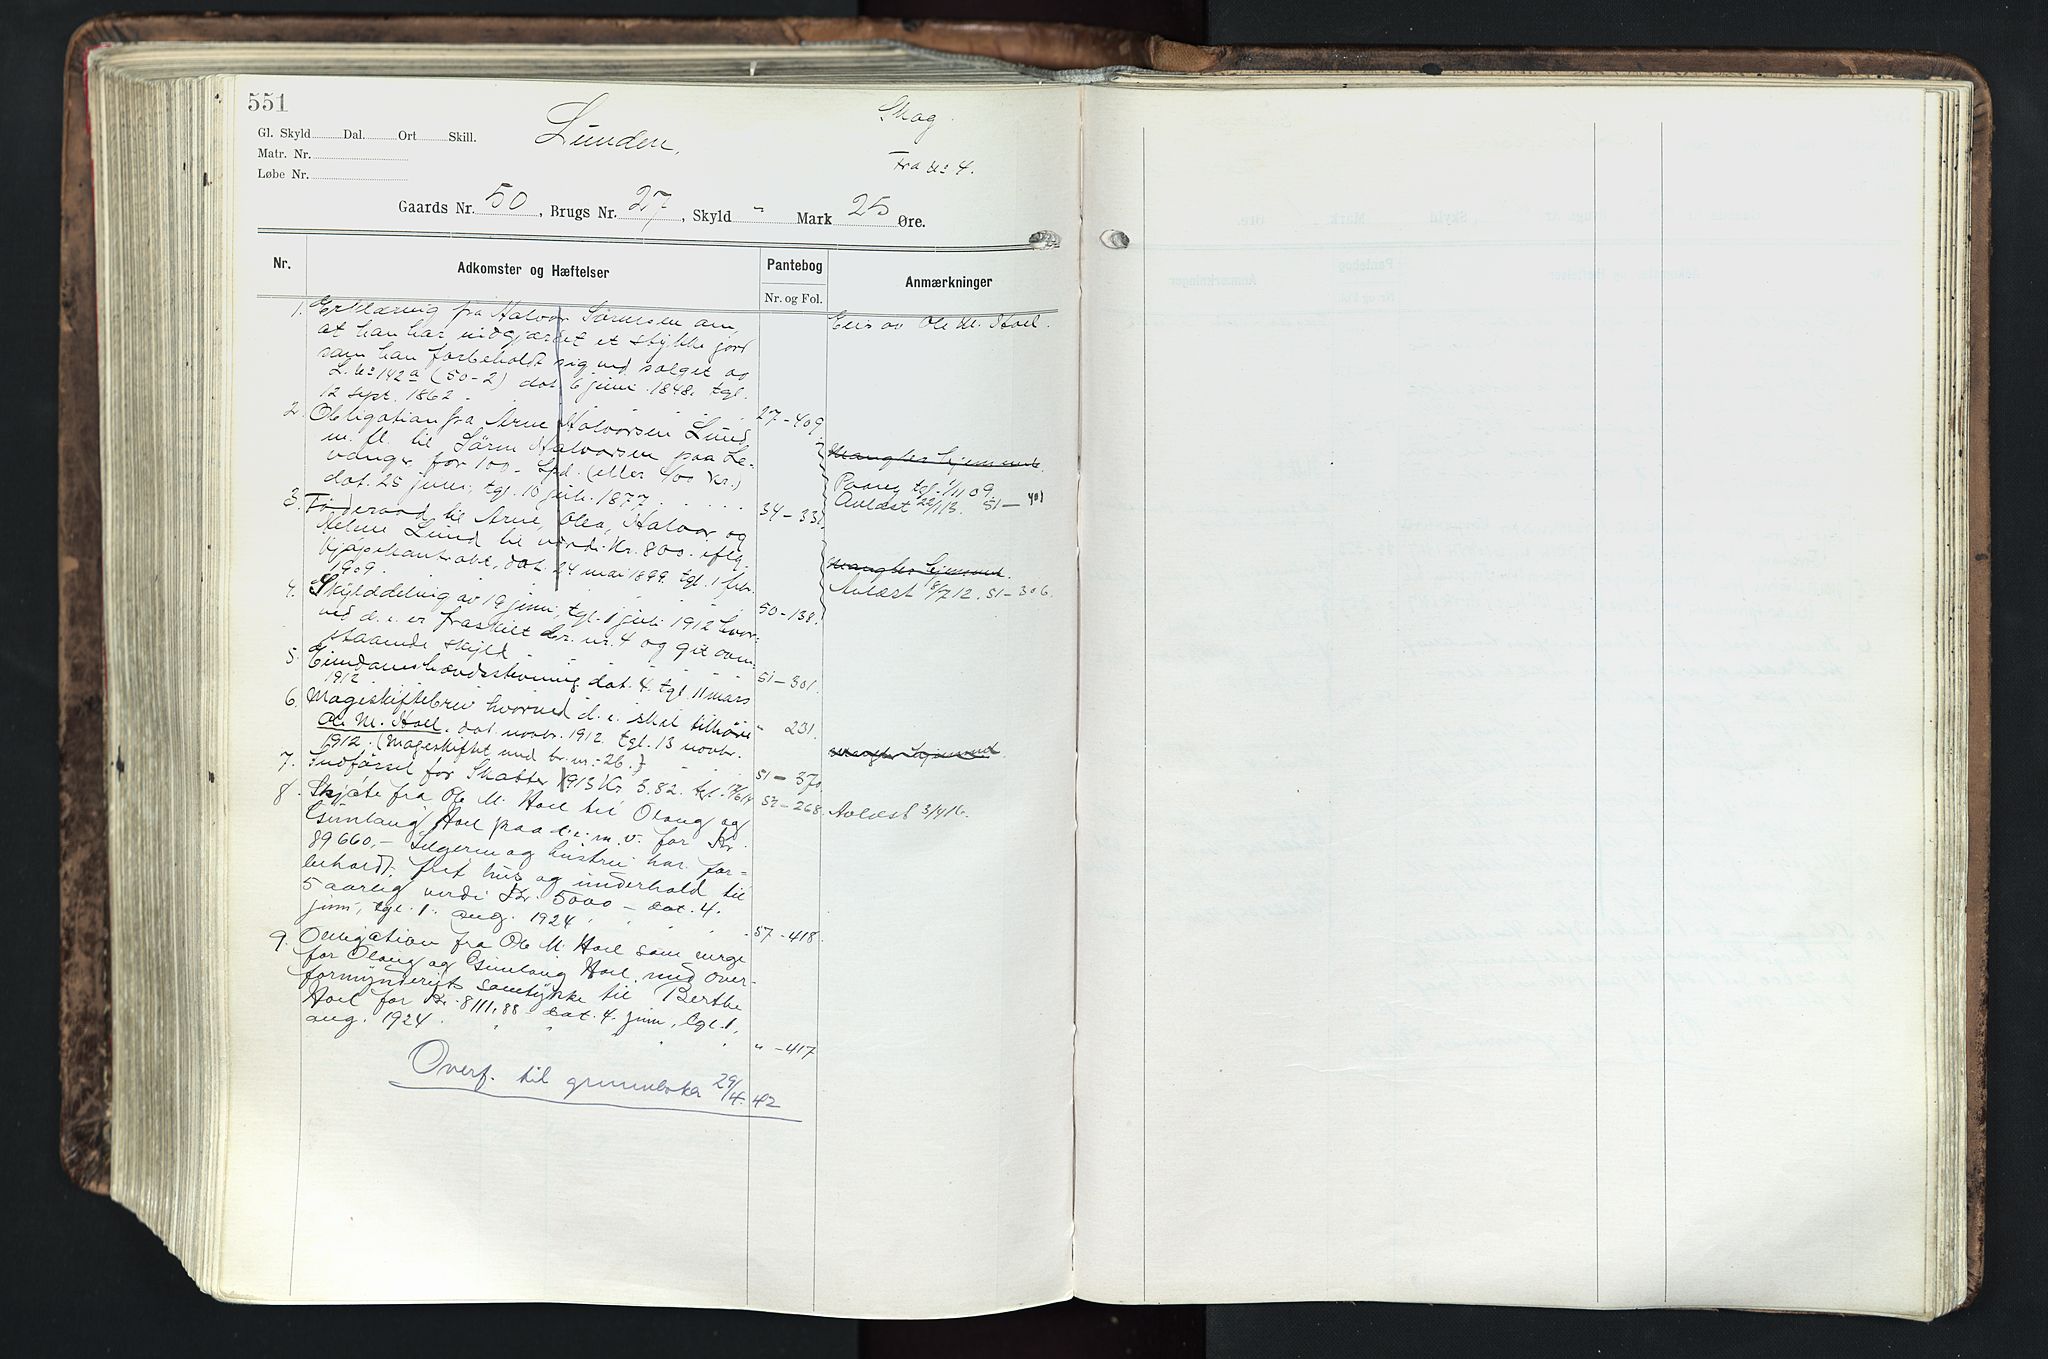 551
Gl. Skyld Dal. Ort Skill.
Matr. Nr.
Løbe Nr.
Lunden,
Skog.
Fra nr 4.
Gaards Nr. 50, Brugs Nr. 27, Skyld - Mark 25 Øre.
Nr. Adkomster og Hæftelser Pantebog Anmærkninger
Nr. og Fol.
1. Erklæring fra Halvor Sørensen om, Eies av Ole M. Hoel.
at han har indgjærdet et stykke jord
som han forbeholdt sig ved salget av
L. No 142a (50-2) dat. 6 juni 1848, tgl.
12 sept. 1862. 27-409
2. Obligation fra Arne Halvorsen Lund
m. fl. til Sören Halvorsen paa Le-
vanger for 100 Spd. (eller 400 Kr.) Mangler hjemmel.
dat. 25 juni, tgl. 10 juli 1877 34-331 Paaeg tgl. 1/11 09.
Avlæst 22/1 13. 51-401
3. Föderaad til Arne, Olea, Halvor og
Helene Lund til verdi Kr. 800. iflg.
kjøpekontrakt, dat. 24 mai 1899 tgl. 1 febr. Mangler hjemmel.
1909. 50-138. Avlæst 8/7 12. 51-306.
4. Skylddeling av 19 juni, tgl. 1 juli 1912 hvor-
ved d. e. er fraskilt br. nr. 4 og git oven-
staaende skyld 51-301.
5. Eiendomshævdsstevning dat. 4. tgl. 11 mars
1912 " 231.
6. Mageskiftebrev hvorved d. e. skal tilhøre
Ole M. Hoel. dat novbr. 1912. tgl. 13 novbr.
1912. (Mageskiftet med br. nr. 26.) 51-370. Mangler hjemmel
7. Indførsel for Skatter 1913 Kr 3.82. tgl. 52-268. Avlæst 3/4 16.
8. Skjöte fra Ole M. Hoel til Olaug og
Gunlaug Hoel paa d. e. m. v. for Kr.
89660,- Selgeren og hustru har for-
beholdt frit hus og underhold til
5 aarlig verdi Kr. 5000 - dat. 4.
juni, tgl. 1. aug. 1924 57-418.
9. Obligation fra Ole M. Hoel som verge
for Olaug og Gunlaug Hoel med over-
formynderiets samtykke til Berthe
Hoel for Kr. 8111,88 - dat. 4. juni, tgl. 1.
aug. 1924. " -417
Overf. til grunnboka 29/4. 42